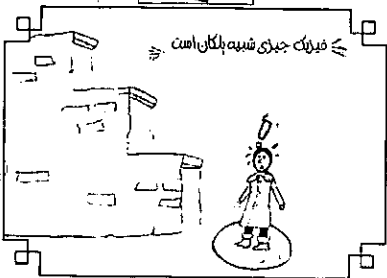 فیزیک چیزی شبیه پلکان است